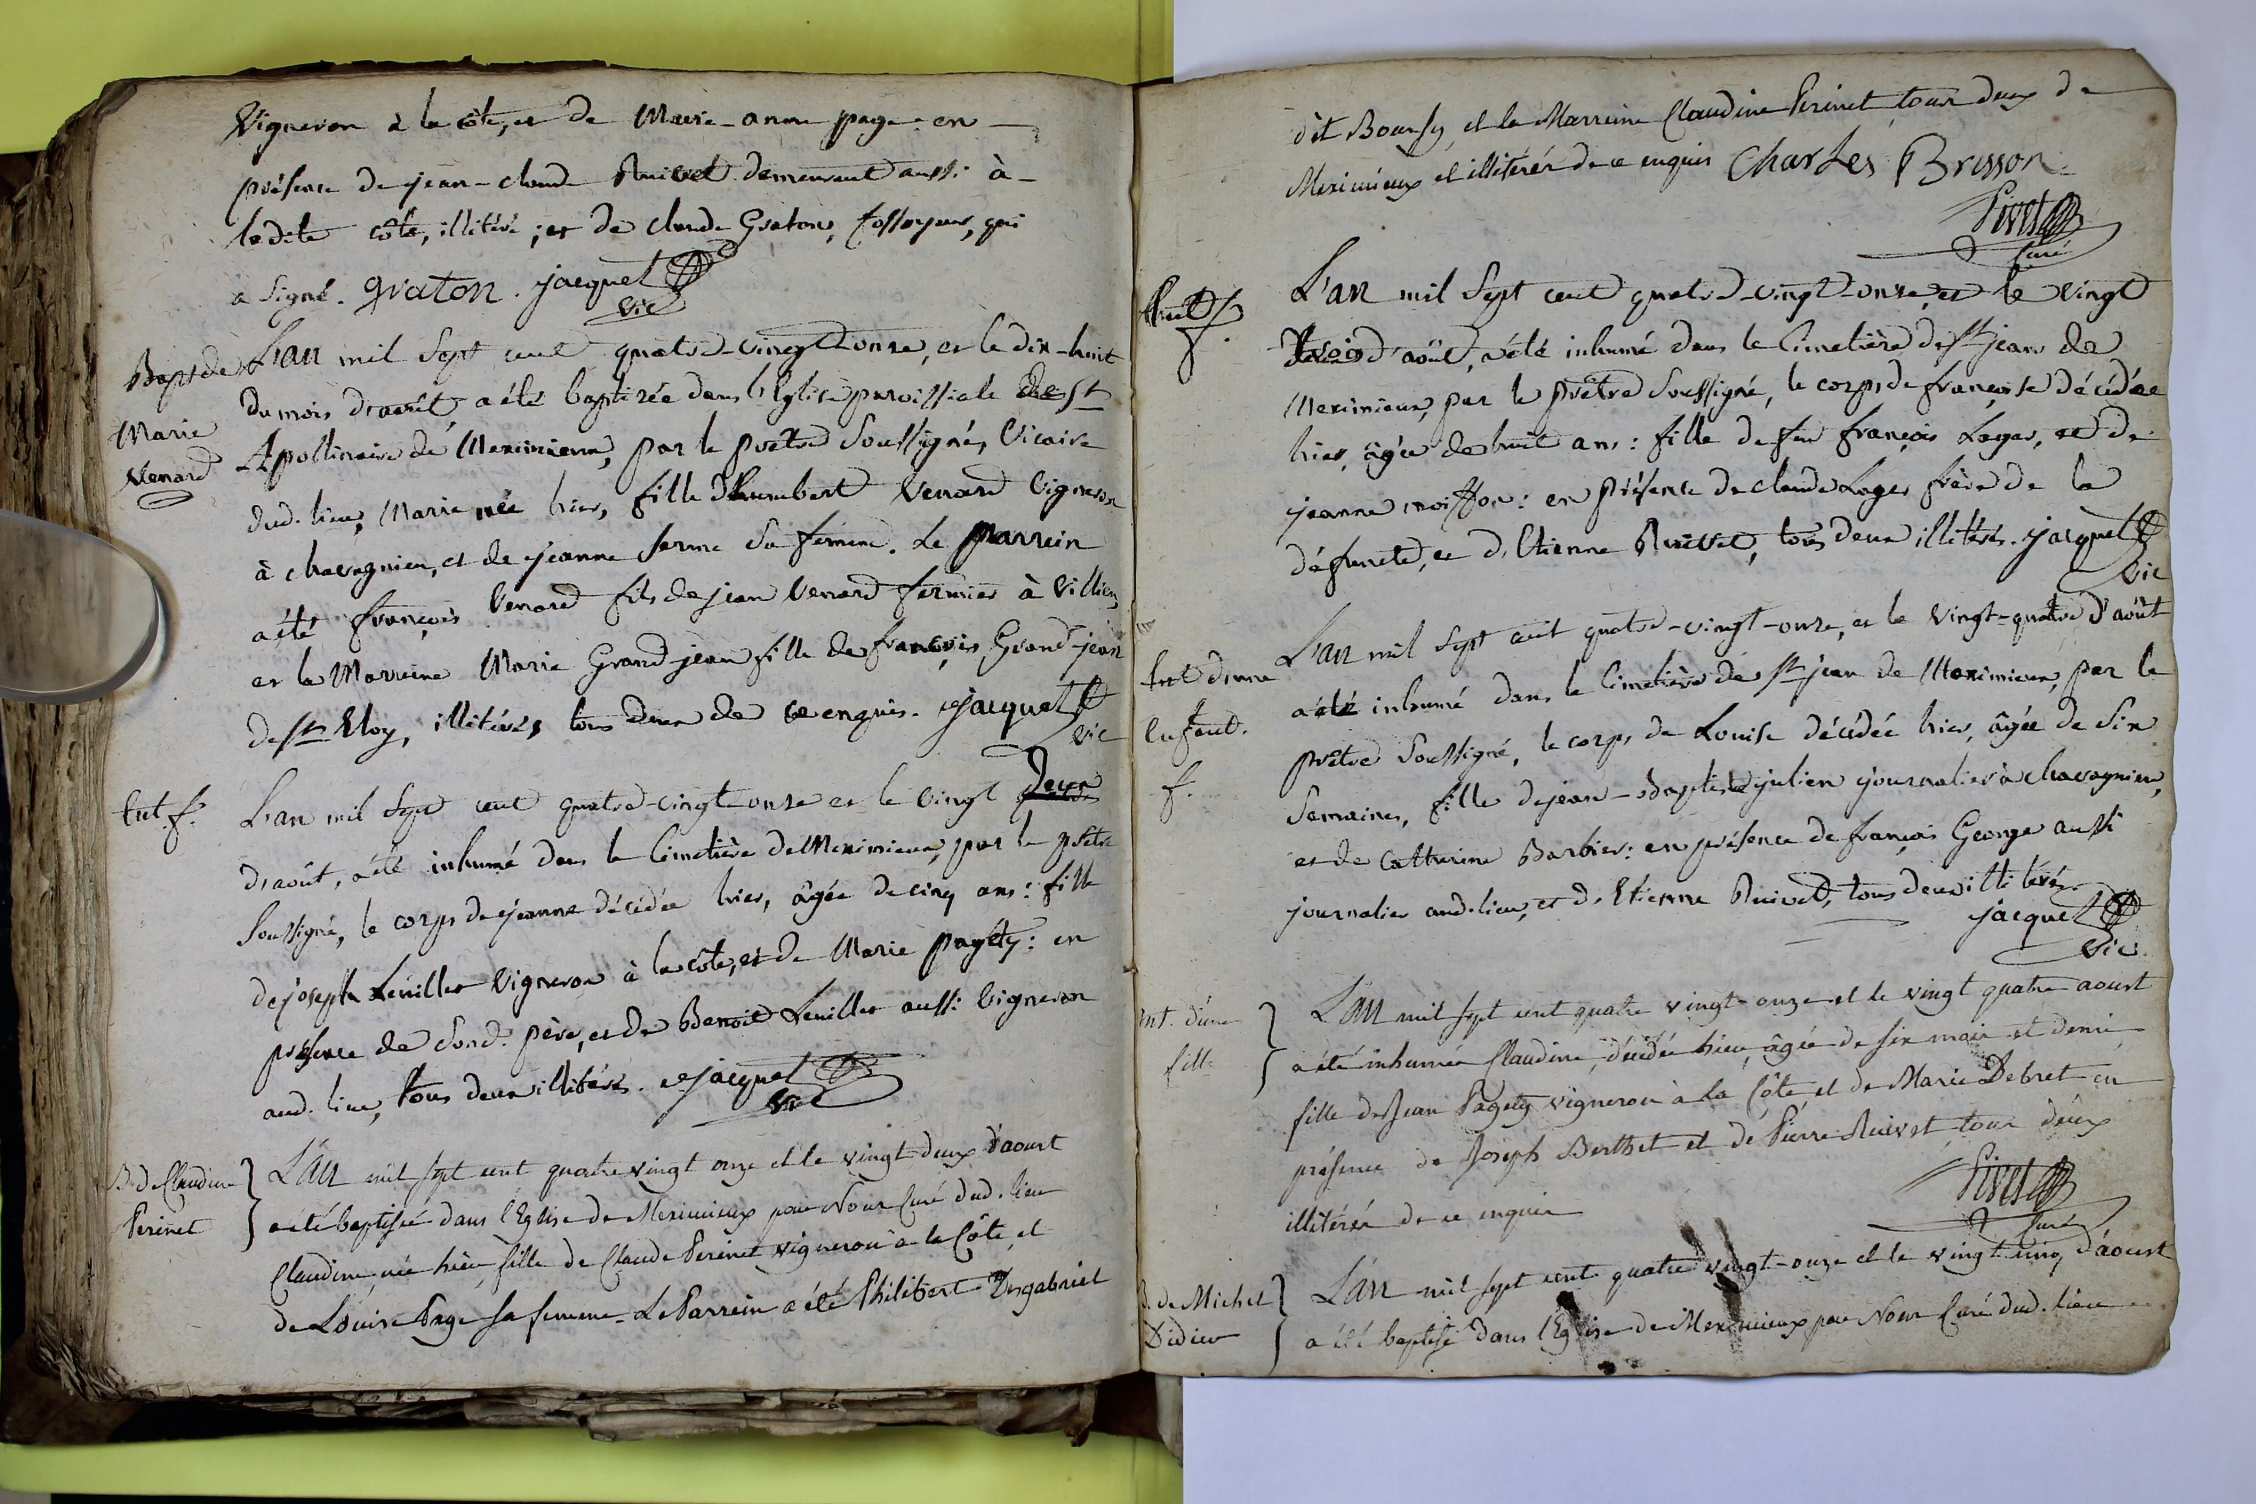 Vigneron à la côte, et de Marie-anne page: en
présence de jean-claude Ruivet demeurant aussi à
ladite côte, illitéré; et de claude Graton, fossoyeur, qui
a signé. Graton. jacquet
vic
Bapt de
Marie
Venard
L'an mil sept cent quatre-vingt-onze, et le dix-huit
du mois d'août, a été baptisée dans l'Eglise paroissiale de St
Apollinaire de Meximieux, par le prêtre soussigné, Vicaire
dud. lieu, Marie née hier, fille d'humbert Venard Vigneron
à chavagnieu, et de jeanne serme sa femme. Le parrein
a été françois Venard fils de jean Venard fermier à Villieu,
et la Marreine Marie Grand-jean fille de françois Grand-jean
de ste Eloy, illitérés tous deux de ce enquis. jacquet
vic
Ent. f.
L'an mil sept cent quatre-vingt-onze et le vingt deux
d'août, a été inhumé dans le Cimetière de Meximieux, par le prêtre
soussigné, le corps de jeanne décédée hier, âgée de cinq ans: fille
de joseph Leuillet Vigneron à la côte, et de Marie pagéty: en
présence de sond. père, et de Benoit Leuillet aussi Vigneron
aud. lieu, tous deux illitérés. jacquet
vic
B. de Claudine
Perinet
L'an mil sept cent quatre vingt onze et le vingt deux d'aoust
a été baptisée dans l'Eglise de Meximieux par Nous Curé dud. lieu
Claudine, née hier, fille de Claude Perinet vigneron à la Côte, et
de Louise Page sa femme. Le Parrein a été Philibert
dit Boursy, et la Marreine Claudine Perinet, tous deux de
Meximieux et illitérés de ce enquis Charles Brisson
Pivet
Curé
Ent. f.
L'an mil sept cent quatre-vingt-onze, et le vingt
trois d'août, a été inhumé dans le Cimetière de st jean de
Meximieux, par le prêtre soussigné, le corps de françoise décédée
hier, âgée de huit ans: fille de feu françois Loger, et de
jeanne moiffon: en présence de claude Loger frère de la
défuncte, et d'Etienne Ruivet, tous deux illitérés. jacquet
vic
Ent d'une
enfant.
f.
L'an mil sept cent quatre-vingt-onze, et le vingt-quatre d'août
a été inhumé dans le Cimetière de st jean de Meximieux, par le
prêtre soussigné, le corps de Louise décédée hier, âgée de six
semaines, fille de jean-Baptiste julien journalier à chavagnieu,
et de Catherine Barbier: en présence de françois George aussi
journalier aud. lieu, et d'Etienne Ruivet, tous deux illitérés.
jacquet
vic.
Ent. d'une
fille
L'an mil sept cent quatre vingt-onze et le vingt quatre aoust
a été inhumée Claudine, décédée hier, âgée de six mois et demi
fille de Jean Pagety vigneron à la Côte, et de Marie Debret en
présence de Joseph Berthet et de Pierre Ruivet, tous deux
illitérés de ce enquis
Pivet
Curé
B. de Michel
Didier
L'an mil sept cent quatre vingt-onze et le vingt cinq d'aoust
a été baptisé dans l'Eglise de Meximieux par Nous Curé dud. lieu